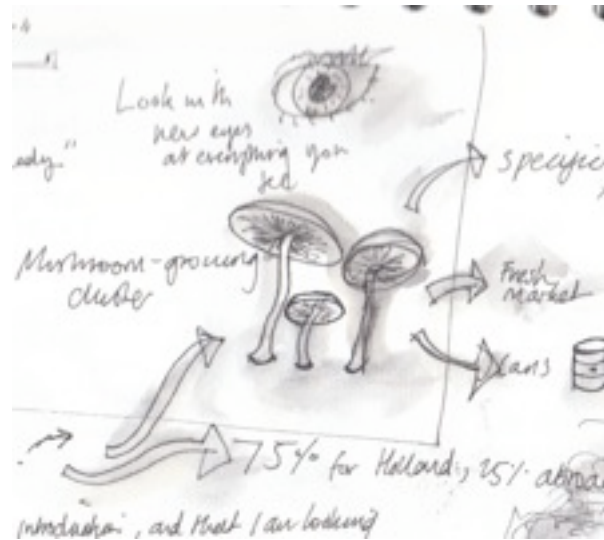 Look with
new eyes
at everything you
see
specific
Mushroom-growing
cluster
Fresh
market
cans
75% for Holland, 25% abroa
introduction, and that I am looking